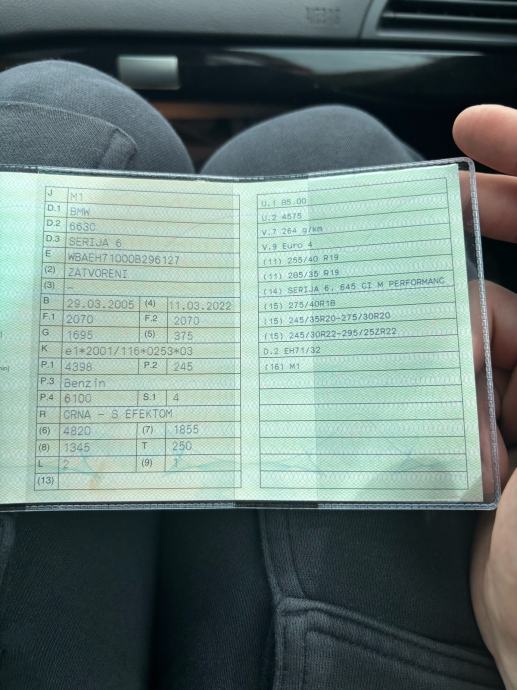 J M1
D.1 BMW
D.2 663C
D.3 SERIJA 6
E WBAEH71000B296127
(2) ZATVORENI
(3) –
B 29.03.2005 (4) 11.03.2022
F.1 2070 F.2 2070
G 1695 (5) 375
K e1*2001/116*0253*03
P.1 4398 P.2 245
P.3 Benzin
P.4 6100 S.1 4
R CRNA - S EFEKTOM
(6) 4820 (7) 1855
(8) 1345 T 250
L 2 (9) 1
(13)
U.1 85.00
U.2 4575
V.7 264 g/km
V.9 Euro 4
(11) 255/40 R19
(11) 285/35 R19
(14) SERIJA 6, 645 CI M PERFORMANC
(15) 275/40R18
(15) 245/35R20-275/30R20
(15) 245/30R22-295/25ZR22
D.2 EH71/32
(16) M1